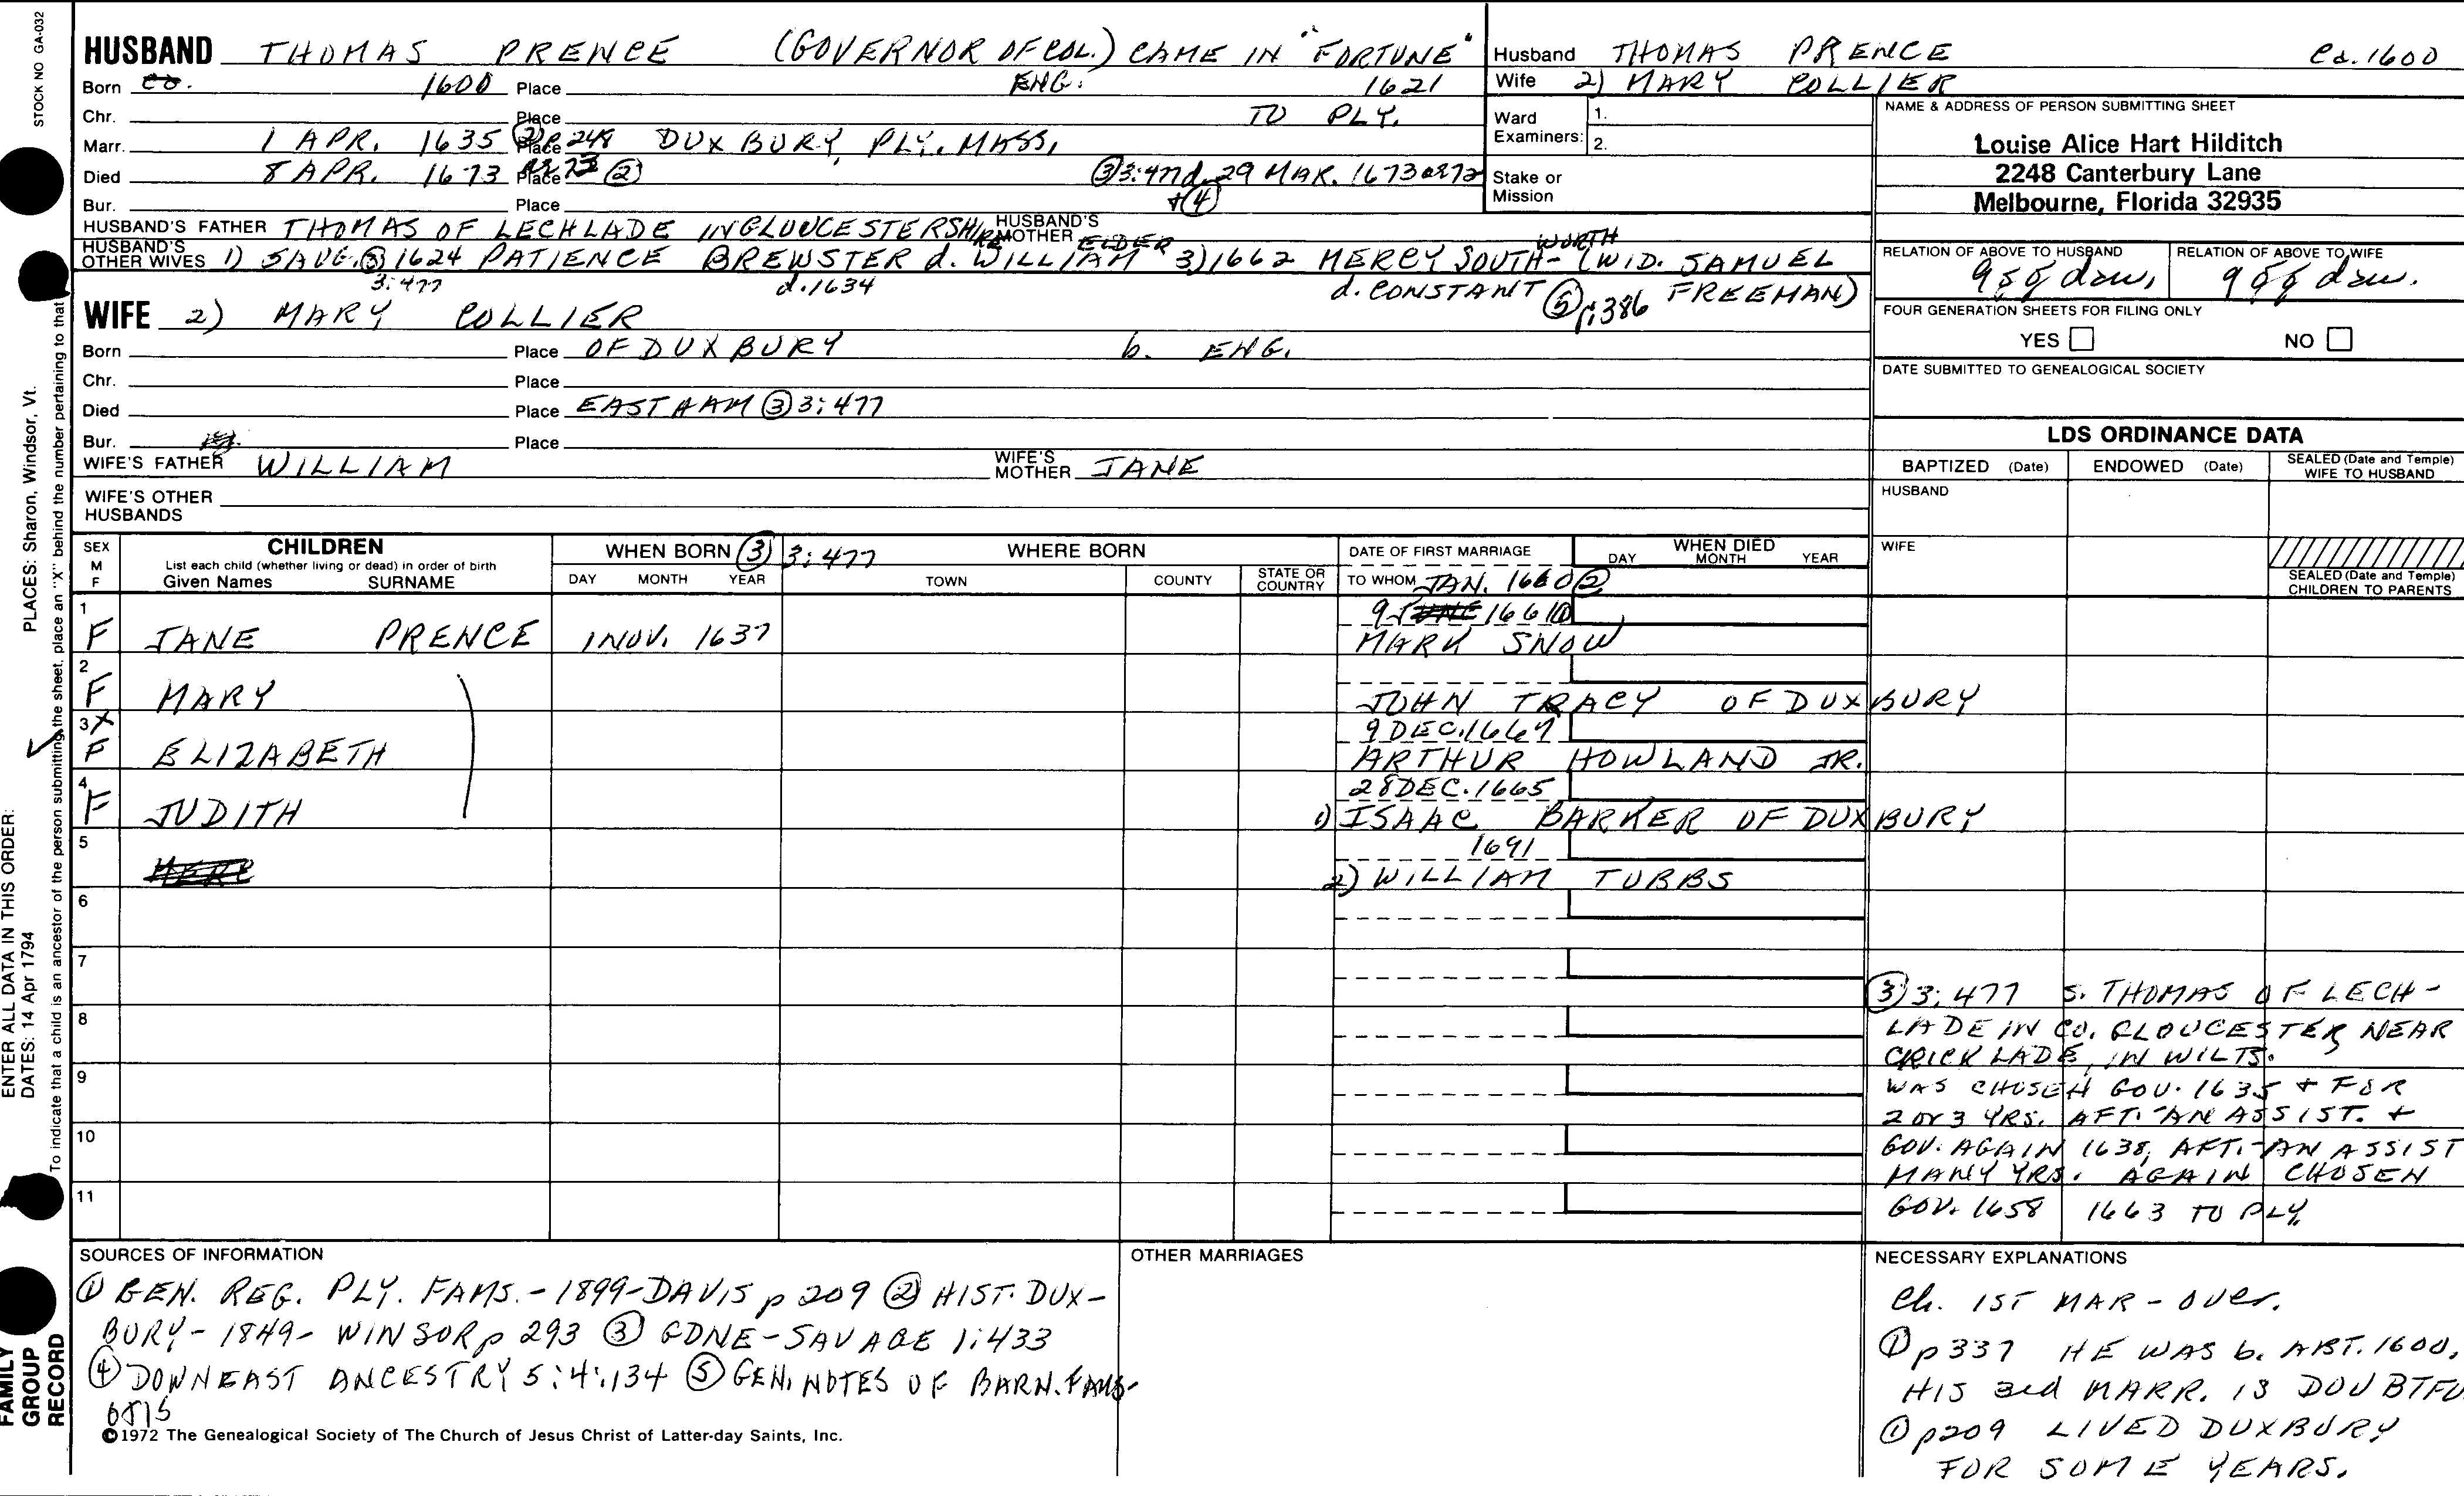 STOCK NO GA-032
HUSBAND THOMAS PRENCE (GOVERNOR OF COL.) CAME IN "FORTUNE"
Born 1600 Place ENG. 1621
Chr. Place TO PLY.
Marr. 1 APR. 1635 Place DUXBURY, PLY. MASS.
Died 8 APR. 1673 Place ② ③ 3:477 d. 29 MAR. 1673
Bur. Place + ④
HUSBAND'S FATHER THOMAS OF LECHLADE IN GLOUCESTERSHIRE HUSBAND'S MOTHER
HUSBAND'S OTHER WIVES 1) 5 AUG. ③ 1624 PATIENCE BREWSTER d. WILLIAM ELDER 3) 1662 MERCY SOUTH-WORTH (WID. SAMUEL
3:477 d. 1634 d. CONSTANT ⑤ p.386 FREEMAN)
WIFE 2) MARY COLLIER
Born Place OF DUXBURY b. ENG.
Chr. Place
Died Place EASTHAM ③ 3:477
Bur. Place
WIFE'S FATHER WILLIAM WIFE'S MOTHER JANE
WIFE'S OTHER HUSBANDS
Husband THOMAS PRENCE Ca. 1600
Wife 2) MARY COLLIER
Ward Examiners: 1.
2.
Stake or Mission
NAME & ADDRESS OF PERSON SUBMITTING SHEET
Louise Alice Hart Hilditch
2248 Canterbury Lane
Melbourne, Florida 32935
RELATION OF ABOVE TO HUSBAND RELATION OF ABOVE TO WIFE
9 gg dau. 9 gg dau.
FOUR GENERATION SHEETS FOR FILING ONLY
YES NO
DATE SUBMITTED TO GENEALOGICAL SOCIETY
LDS ORDINANCE DATA
BAPTIZED (Date) ENDOWED (Date) SEALED (Date and Temple) WIFE TO HUSBAND
HUSBAND
WIFE
SEALED (Date and Temple) CHILDREN TO PARENTS
SEX M F
CHILDREN
List each child (whether living or dead) in order of birth
Given Names SURNAME
WHEN BORN ③ 3:477
DAY MONTH YEAR
WHERE BORN
TOWN COUNTY STATE OR COUNTRY
DATE OF FIRST MARRIAGE
TO WHOM JAN. 1660 ②
WHEN DIED
DAY MONTH YEAR
1 9 1661 ①
F JANE PRENCE 1 NOV. 1637 MARK SNOW
2
F MARY JOHN TRACY OF DUXBURY
3 X 9 DEC. 1667
F ELIZABETH ARTHUR HOWLAND JR.
4 28 DEC. 1665
F JUDITH 1) ISAAC BARKER OF DUXBURY
5 1691
2) WILLIAM TUBBS
6
7
8
9
10
11
③ 3:477 S. THOMAS OF LECH-
LADE IN CO. GLOUCESTER, NEAR
CRICKLADE, IN WILTS.
WAS CHOSEN GOV. 1635 + FOR
2 or 3 YRS. AFT. AN ASSIST. +
GOV. AGAIN 1638, AFT. AN ASSIST
MANY YRS. AGAIN CHOSEN
GOV. 1658 1663 TO PLY.
SOURCES OF INFORMATION
① GEN. REG. PLY. FAMS. - 1899 - DAVIS p 209 ② HIST. DUX-
BURY - 1849 - WINSOR p 293 ③ GDNE - SAVAGE 1:433
④ DOWNEAST ANCESTRY 5:4:134 ⑤ GEN. NOTES OF BARN. FAMS-
©1972 The Genealogical Society of The Church of Jesus Christ of Latter-day Saints, Inc.
OTHER MARRIAGES
NECESSARY EXPLANATIONS
Ch. 1ST MAR - over.
① p 337 HE WAS b. ABT. 1600.
HIS 3rd MARR. IS DOUBTFU
① p209 LIVED DUXBURY
FOR SOME YEARS.
ENTER ALL DATA IN THIS ORDER:
PLACES: Sharon, Windsor, Vt.
DATES: 14 Apr 1794
To indicate that a child is an ancestor of the person submitting the sheet, place an "X" behind the number pertaining to that
FAMILY GROUP RECORD